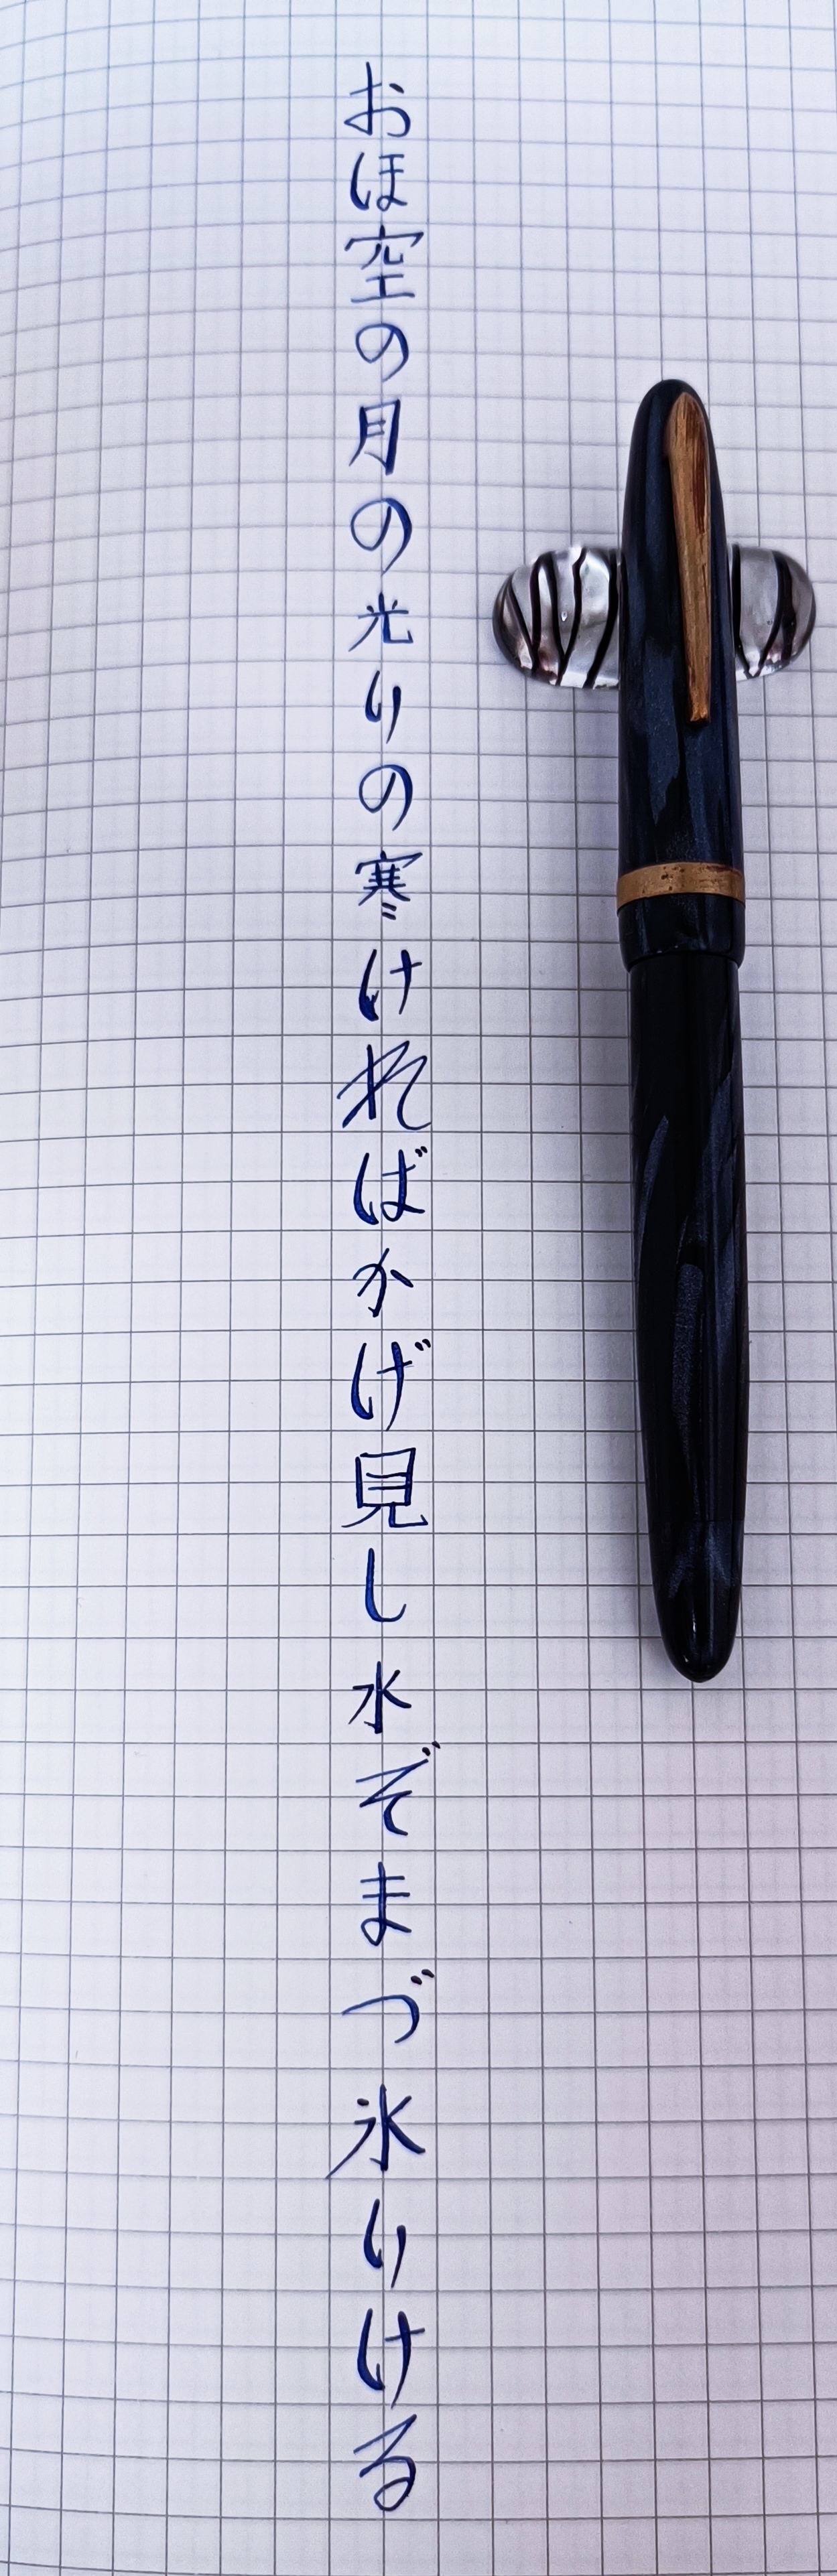 おほ空の月の光りの寒ければかげ見し水ぞまづ氷りける